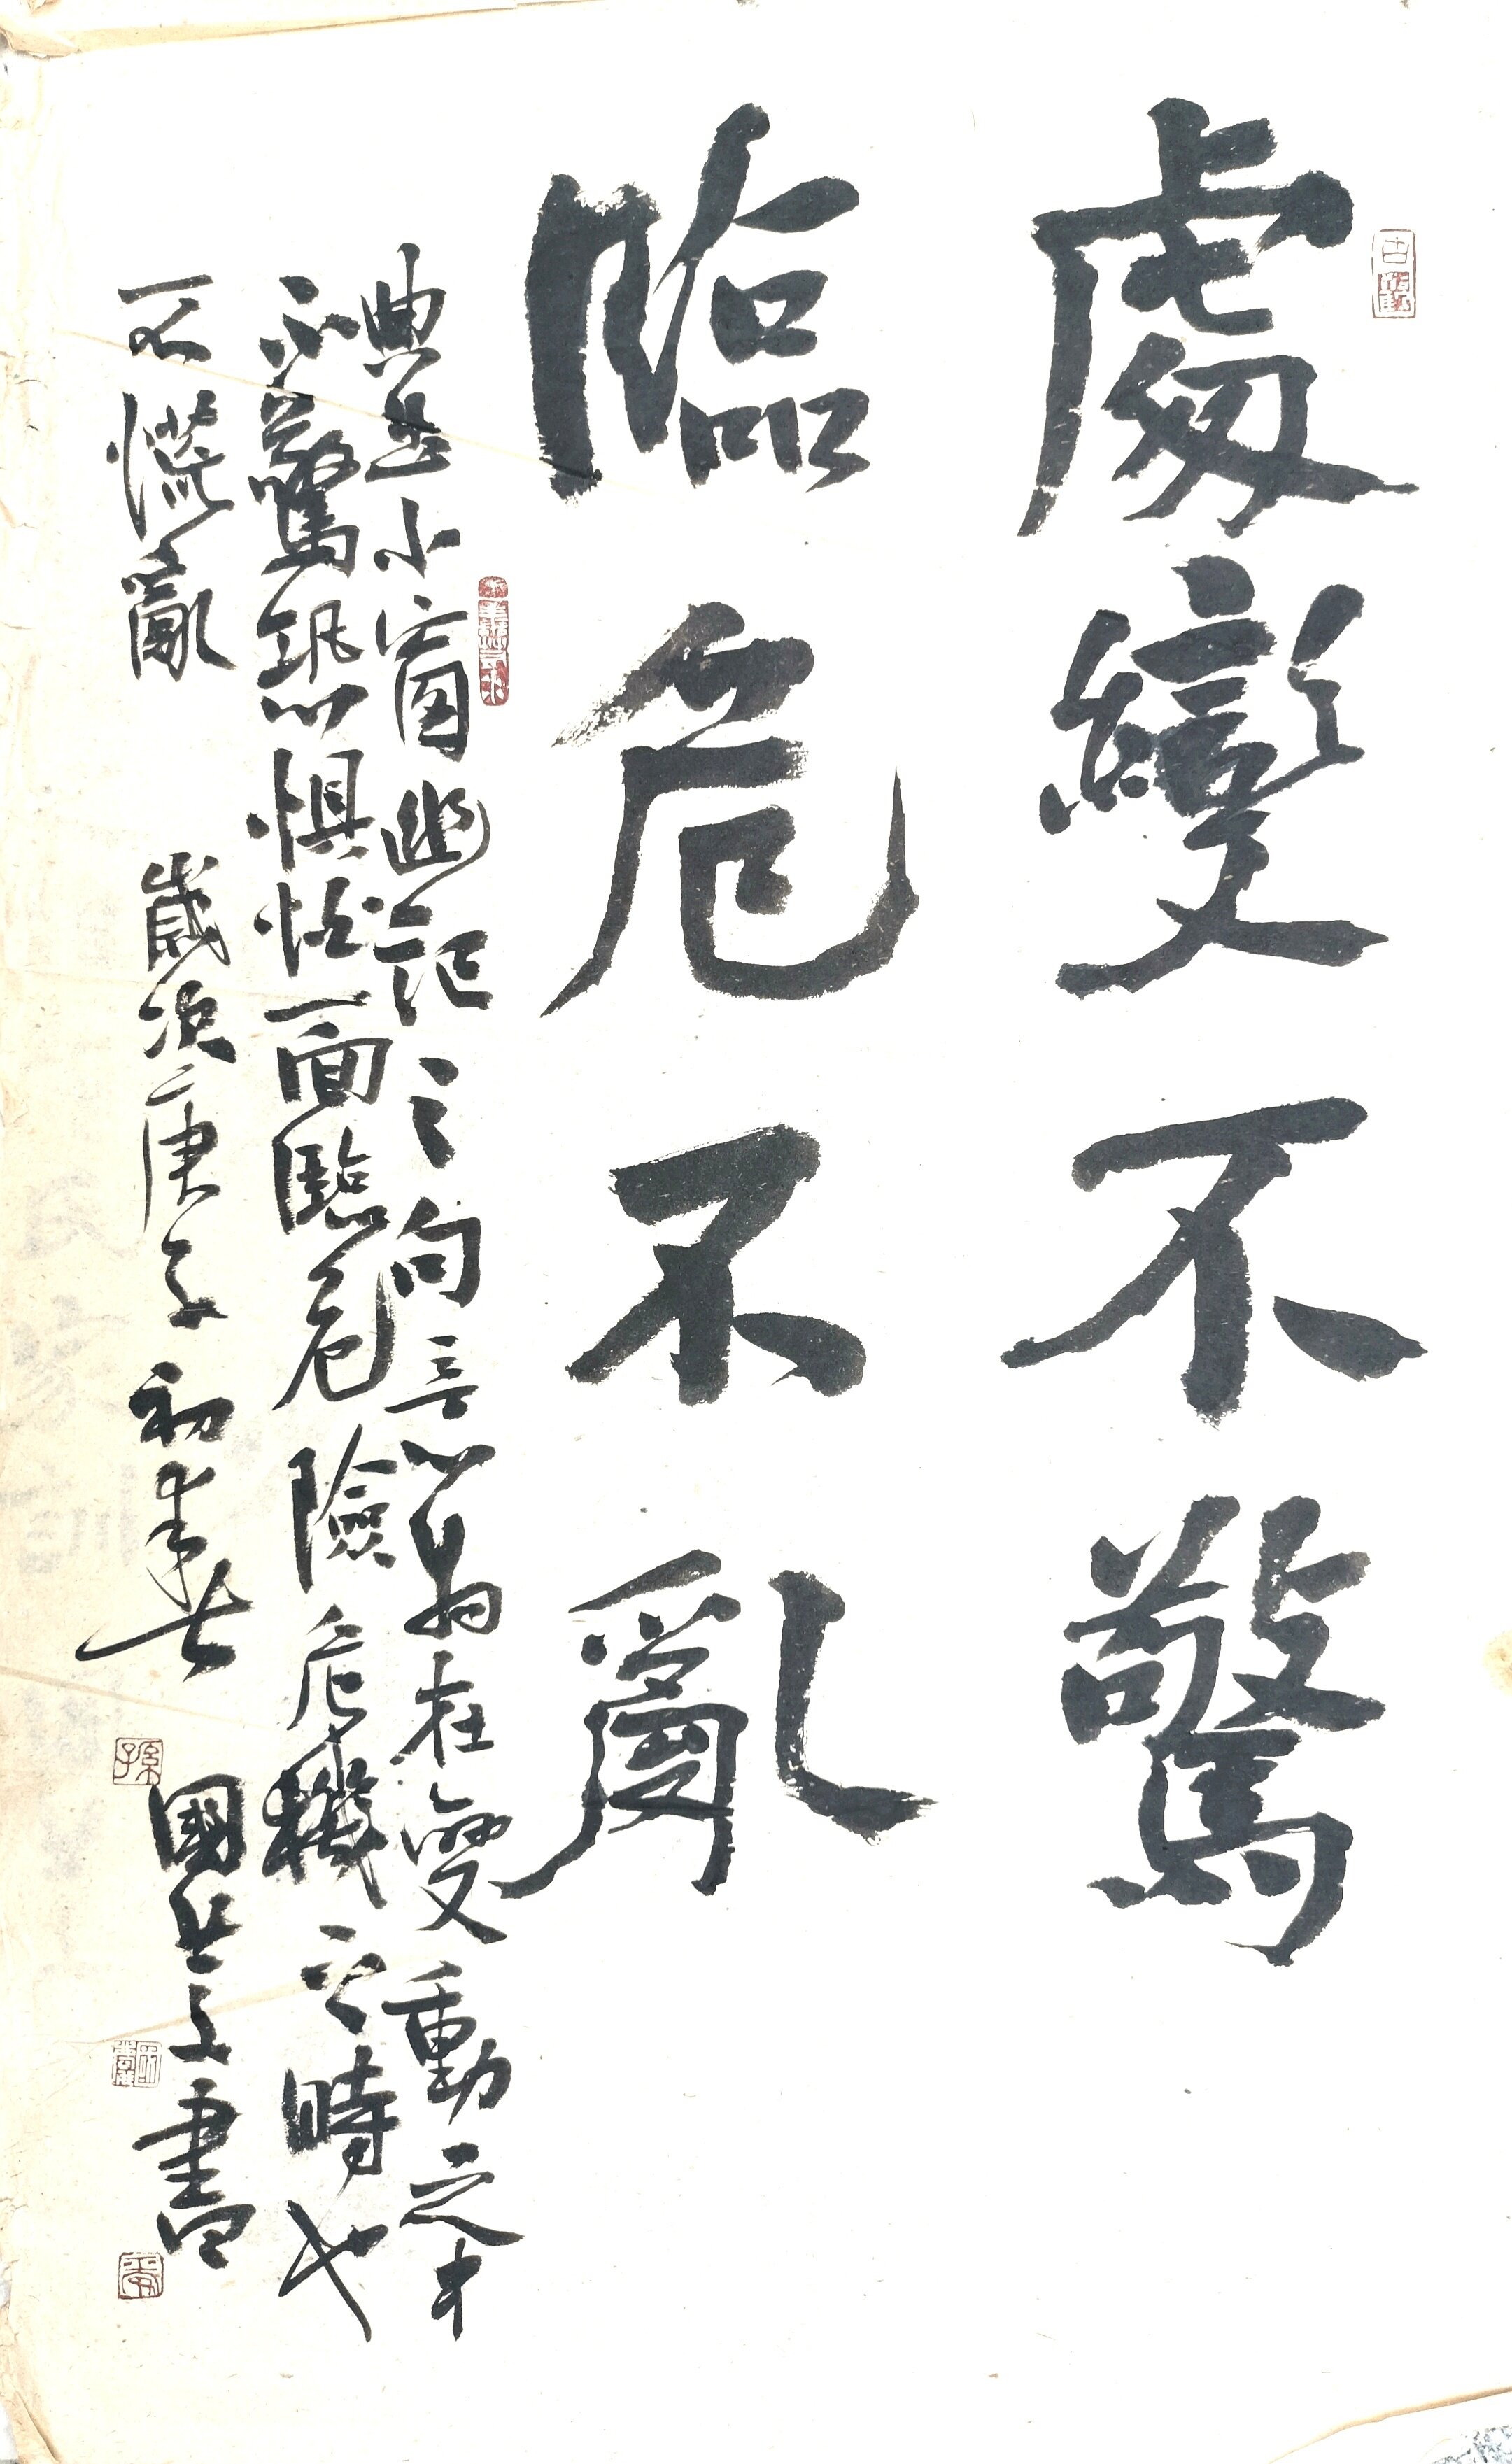 處變不驚
臨危不亂
典出小窗幽記之句意為在變動之中
不驚恐懼怕面臨危險危機之時也
不慌亂 歲次庚子初春 國 書
孫